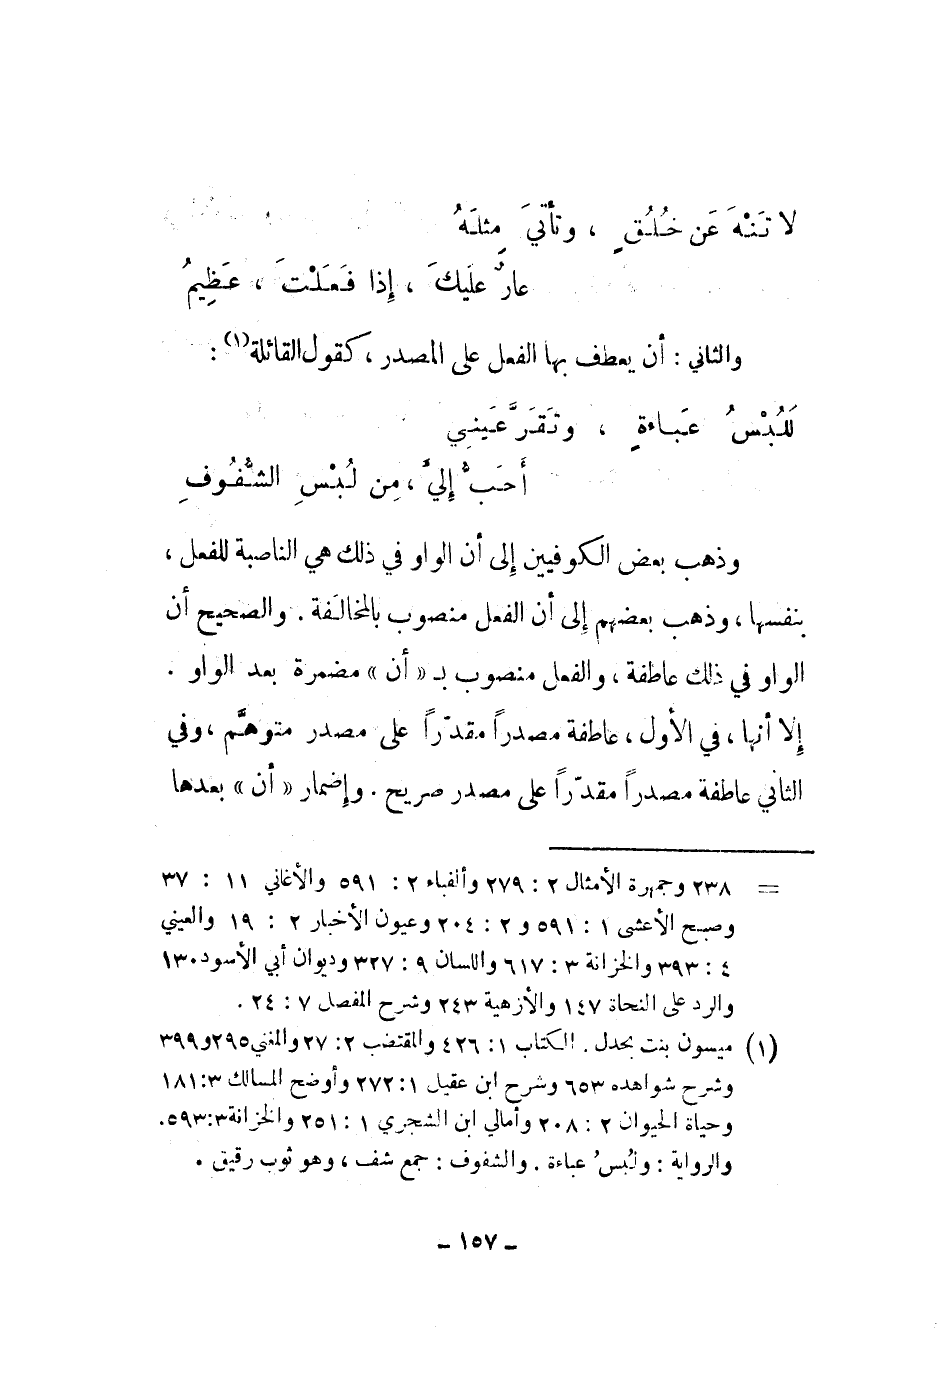 لا تَنْهَ عَن خُلُقٍ ، وتأتيَ مِثلَهُ
عارٌ علَيكَ ، إِذا فَعَلْتَ ، عَظِيمُ
والثاني : أن يعطف بها الفعل على المصدر ، كقول القائلة(١) :
لَلُبْسُ عَباءةٍ ، وتَقَرَّ عَينِي
أَحَبُّ إِليَّ ، مِن لُبْسِ الشُّفُوفِ
وذهب بعض الكوفيين إِلى أن الواو في ذلك هي الناصبة للفعل ،
بنفسها ، وذهب بعضهم إِلى أن الفعل منصوب بالمخالَفة . والصحيح أن
الواو في ذلك عاطفة ، والفعل منصوب بـ « أن » مضمرة بعد الواو .
إِلا أنها ، في الأول ، عاطفة مصدراً مقدّراً على مصدر متوهَّم ، وفي
الثاني عاطفة مصدراً مقدّراً على مصدر صريح . وإضمار « أن » بعدها
= ٢٣٨ وجمهرة الأمثال ٢ : ٢٧٩ وألفباء ٢ : ٥٩١ والأغاني ١١ : ٣٧
وصبح الأعشى ١ : ٥٩١ و ٢ : ٢٠٤ وعيون الأخبار ٢ : ١٩ والعيني
٤ : ٣٩٣ والخزانة ٣ : ٦١٧ واللسان ٩ : ٣٢٧ وديوان أبي الأسود ١٣٠
والرد على النحاة ١٤٧ والأزهية ٢٤٣ وشرح المفصل ٧ : ٢٤ .
(١) ميسون بنت بحدل . الكتاب ١ : ٤٢٦ والمقتضب ٢ : ٢٧ والمغني ٢٩٥ و ٣٩٩
وشرح شواهده ٦٥٣ وشرح ابن عقيل ١ : ٢٧٢ وأوضح المسالك ٣ : ١٨١
وحياة الحيوان ٢ : ٢٠٨ وأمالي ابن الشجري ١ : ٢٥١ والخزانة ٣ : ٥٩٣ .
والرواية : ولُبسُ عباءة . والشفوف : جمع شف ، وهو ثوب رقيق .
- ١٥٧ -